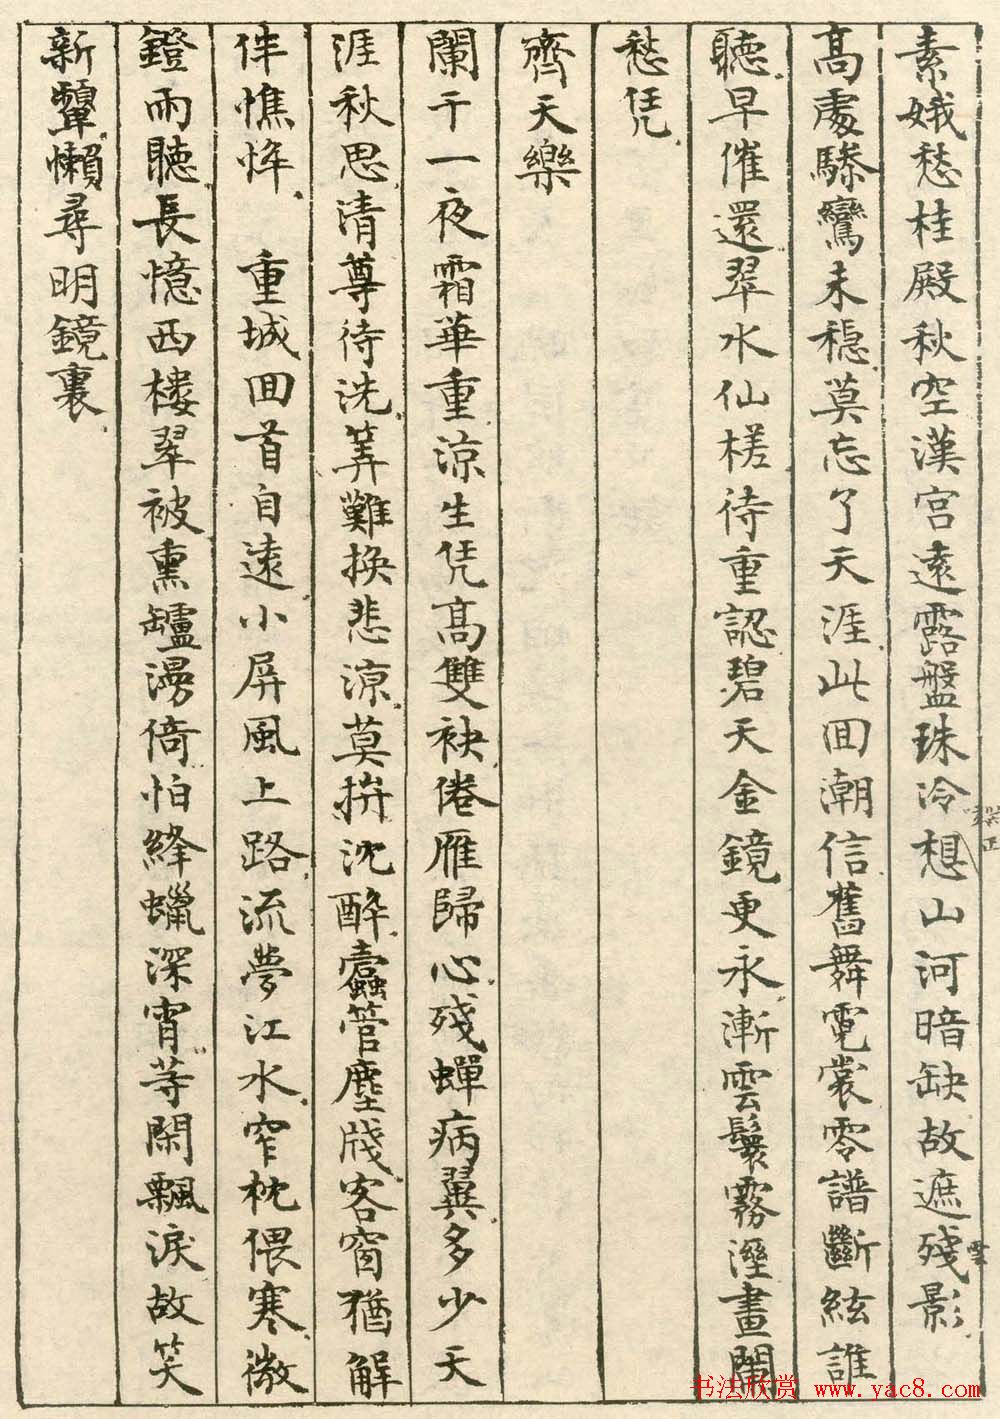 素娥愁桂殿秋空漢宮遠露盤珠冷想山河暗缺故遮殘影
高處驂鸞未穩莫忘了天涯此回潮信舊舞霓裳零譜斷絃誰
聽早催還翠水仙槎待重認碧天金鏡更永漸雲鬟霧溼畫闌
愁凭
齊天樂
闌干一夜霜華重涼生凭高雙袂倦雁歸心殘蟬病翼多少天
涯秋思清尊待洗算難換悲涼莫拚沈醉蠹管塵牋客窗猶解
伴憔悴 重城回首自遠小屏風上路流夢江水窄枕偎寒微
鐙雨聽長憶西樓翠被熏罏漫倚怕絳蠟深宵等閑飄淚故笑
新顰懶尋明鏡裏
书法欣赏 www.yac8.com